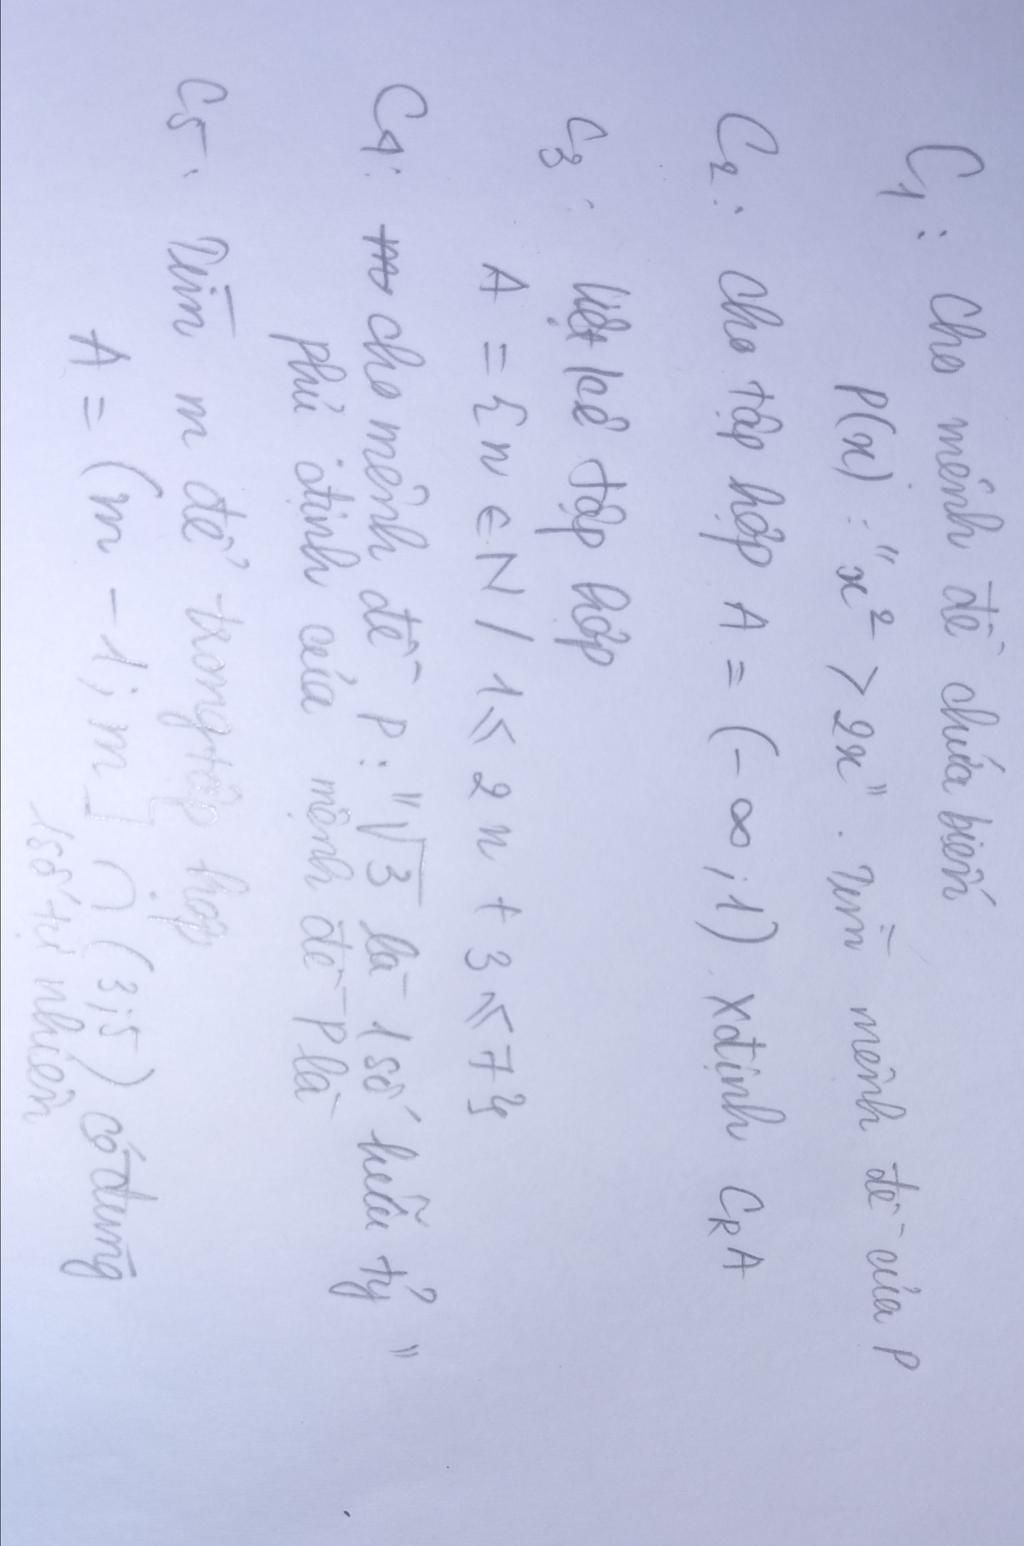 C1: Cho mệnh đề chứa biến
P(x): "x² > 2x". Tìm mệnh đề của P
C2: Cho tập hợp A = (-∞; 1) xđịnh CRA
C3: liệt kê tập hợp
A = {n ∈ N / 1 ≤ 2n + 3 ≤ 7}
C4: cho mệnh đề P: "√3 là 1 số hữu tỷ"
phủ định của mệnh đề P là
C5. Tìm m để trong tập hợp
A = (m - 1; m] ∩ (3; 5) có đúng
1 số tự nhiên